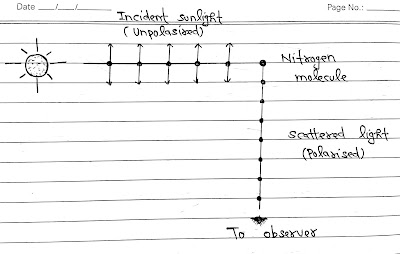 Date ___/___/___
Page No.: ______
Incident sunlight
(Unpolarized)
Nitrogen
molecule
Scattered light
(Polarised)
To observer